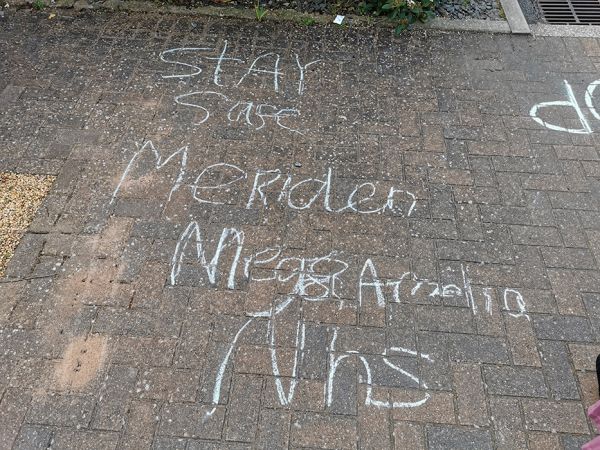 StAY
Safe
Meriden
Mege & Arnelia
Nhs
do